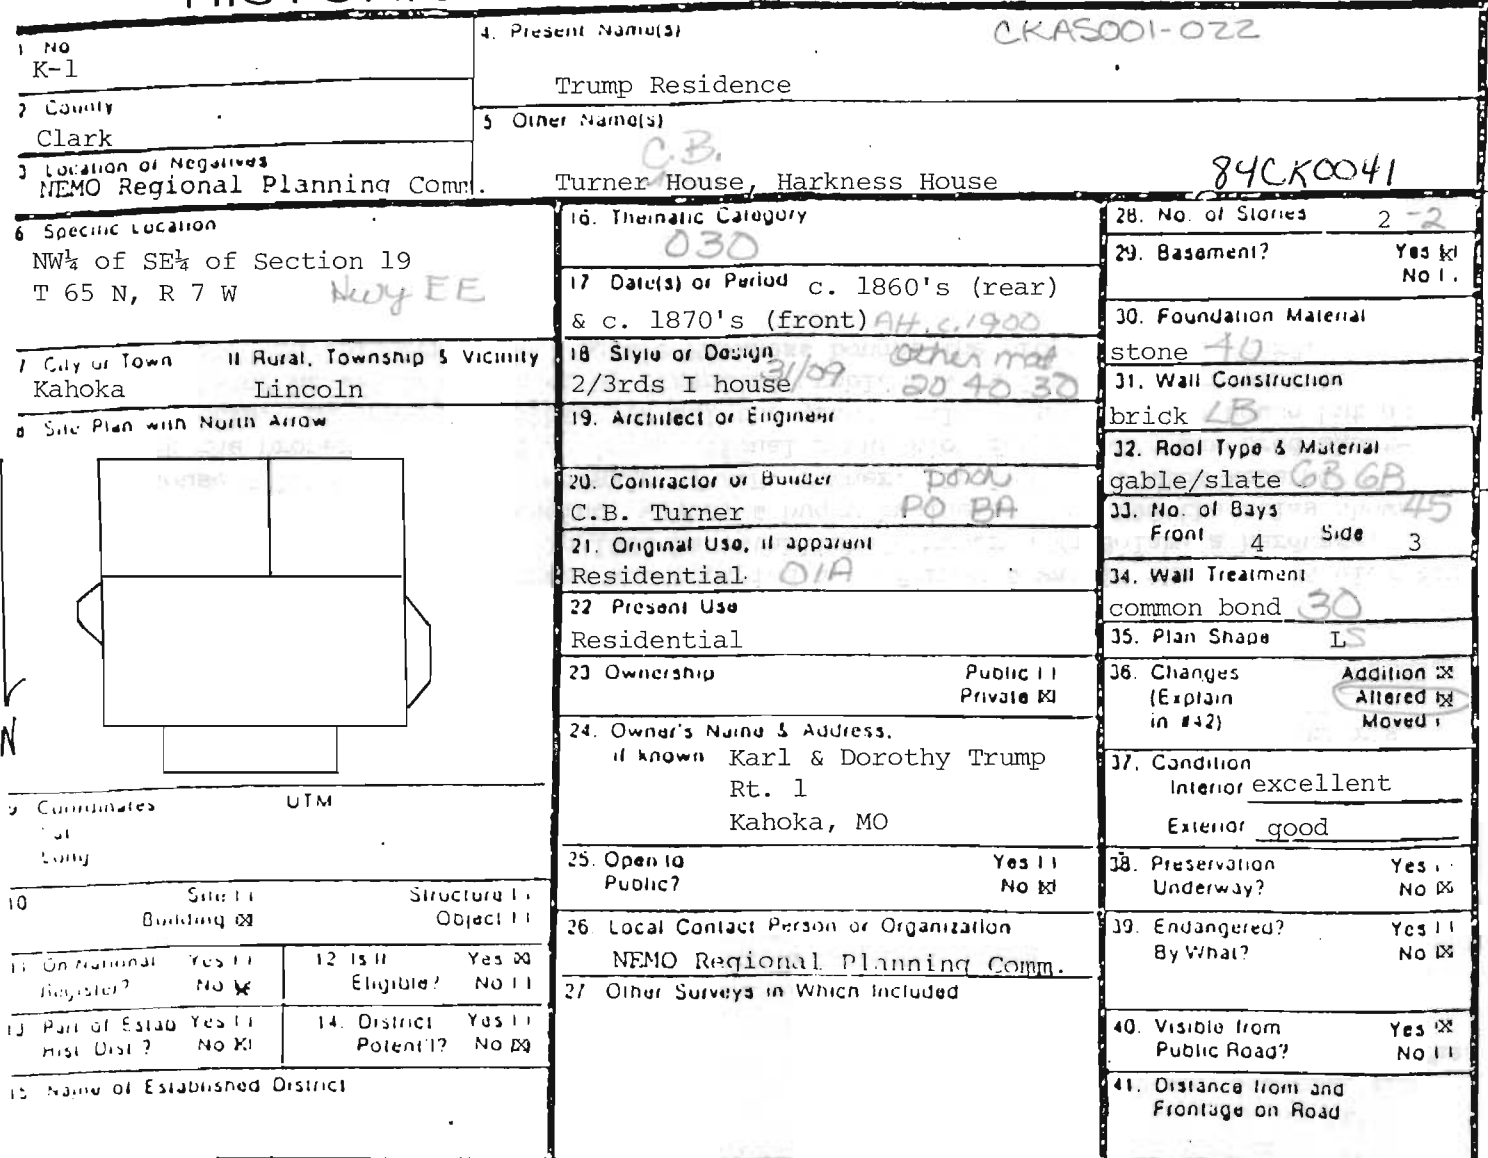 1 No
K-1
2 County
Clark
3 Location of Negatives
NEMO Regional Planning Comm.
4. Present Name(s)
CKAS001-022
Trump Residence
5 Other Name(s)
C.B.
Turner House, Harkness House
84CK0041
6 Specific Location
NW¼ of SE¼ of Section 19
T 65 N, R 7 W Hwy EE
7 City or Town If Rural, Township & Vicinity
Kahoka Lincoln
8 Site Plan with North Arrow
N
9 Coordinates UTM
Lat
Long
10 Site Structure
Building Object
11 On National Register? Yes No
12 Is It Eligible? Yes No
13 Part of Estab Hist. Dist.? Yes No
14. District Potent'l? Yes No
15 Name of Established District
16. Thematic Category
030
17 Date(s) or Period c. 1860's (rear)
& c. 1870's (front) Alt. c. 1900
18 Style or Design other mat
2/3rds I house 31/09 20 40 30
19. Architect or Engineer
20. Contractor or Builder
C.B. Turner PO BA
21. Original Use, if apparent
Residential 01A
22 Present Use
Residential
23 Ownership Public
Private
24. Owner's Name & Address,
if known Karl & Dorothy Trump
Rt. 1
Kahoka, MO
25. Open to Yes
Public? No
26. Local Contact Person or Organization
NEMO Regional Planning Comm.
27 Other Surveys in Which Included
28. No. of Stories 2 -2
29. Basement? Yes
No
30. Foundation Material
stone 40
31. Wall Construction
brick LB
32. Roof Type & Material
gable/slate GB GB
33. No. of Bays 45
Front 4 Side 3
34. Wall Treatment
common bond 30
35. Plan Shape L S
36. Changes Addition
(Explain Altered
in #42) Moved
37. Condition
Interior excellent
Exterior good
38. Preservation Yes
Underway? No
39. Endangered? Yes
By What? No
40. Visible from Yes
Public Road? No
41. Distance from and
Frontage on Road